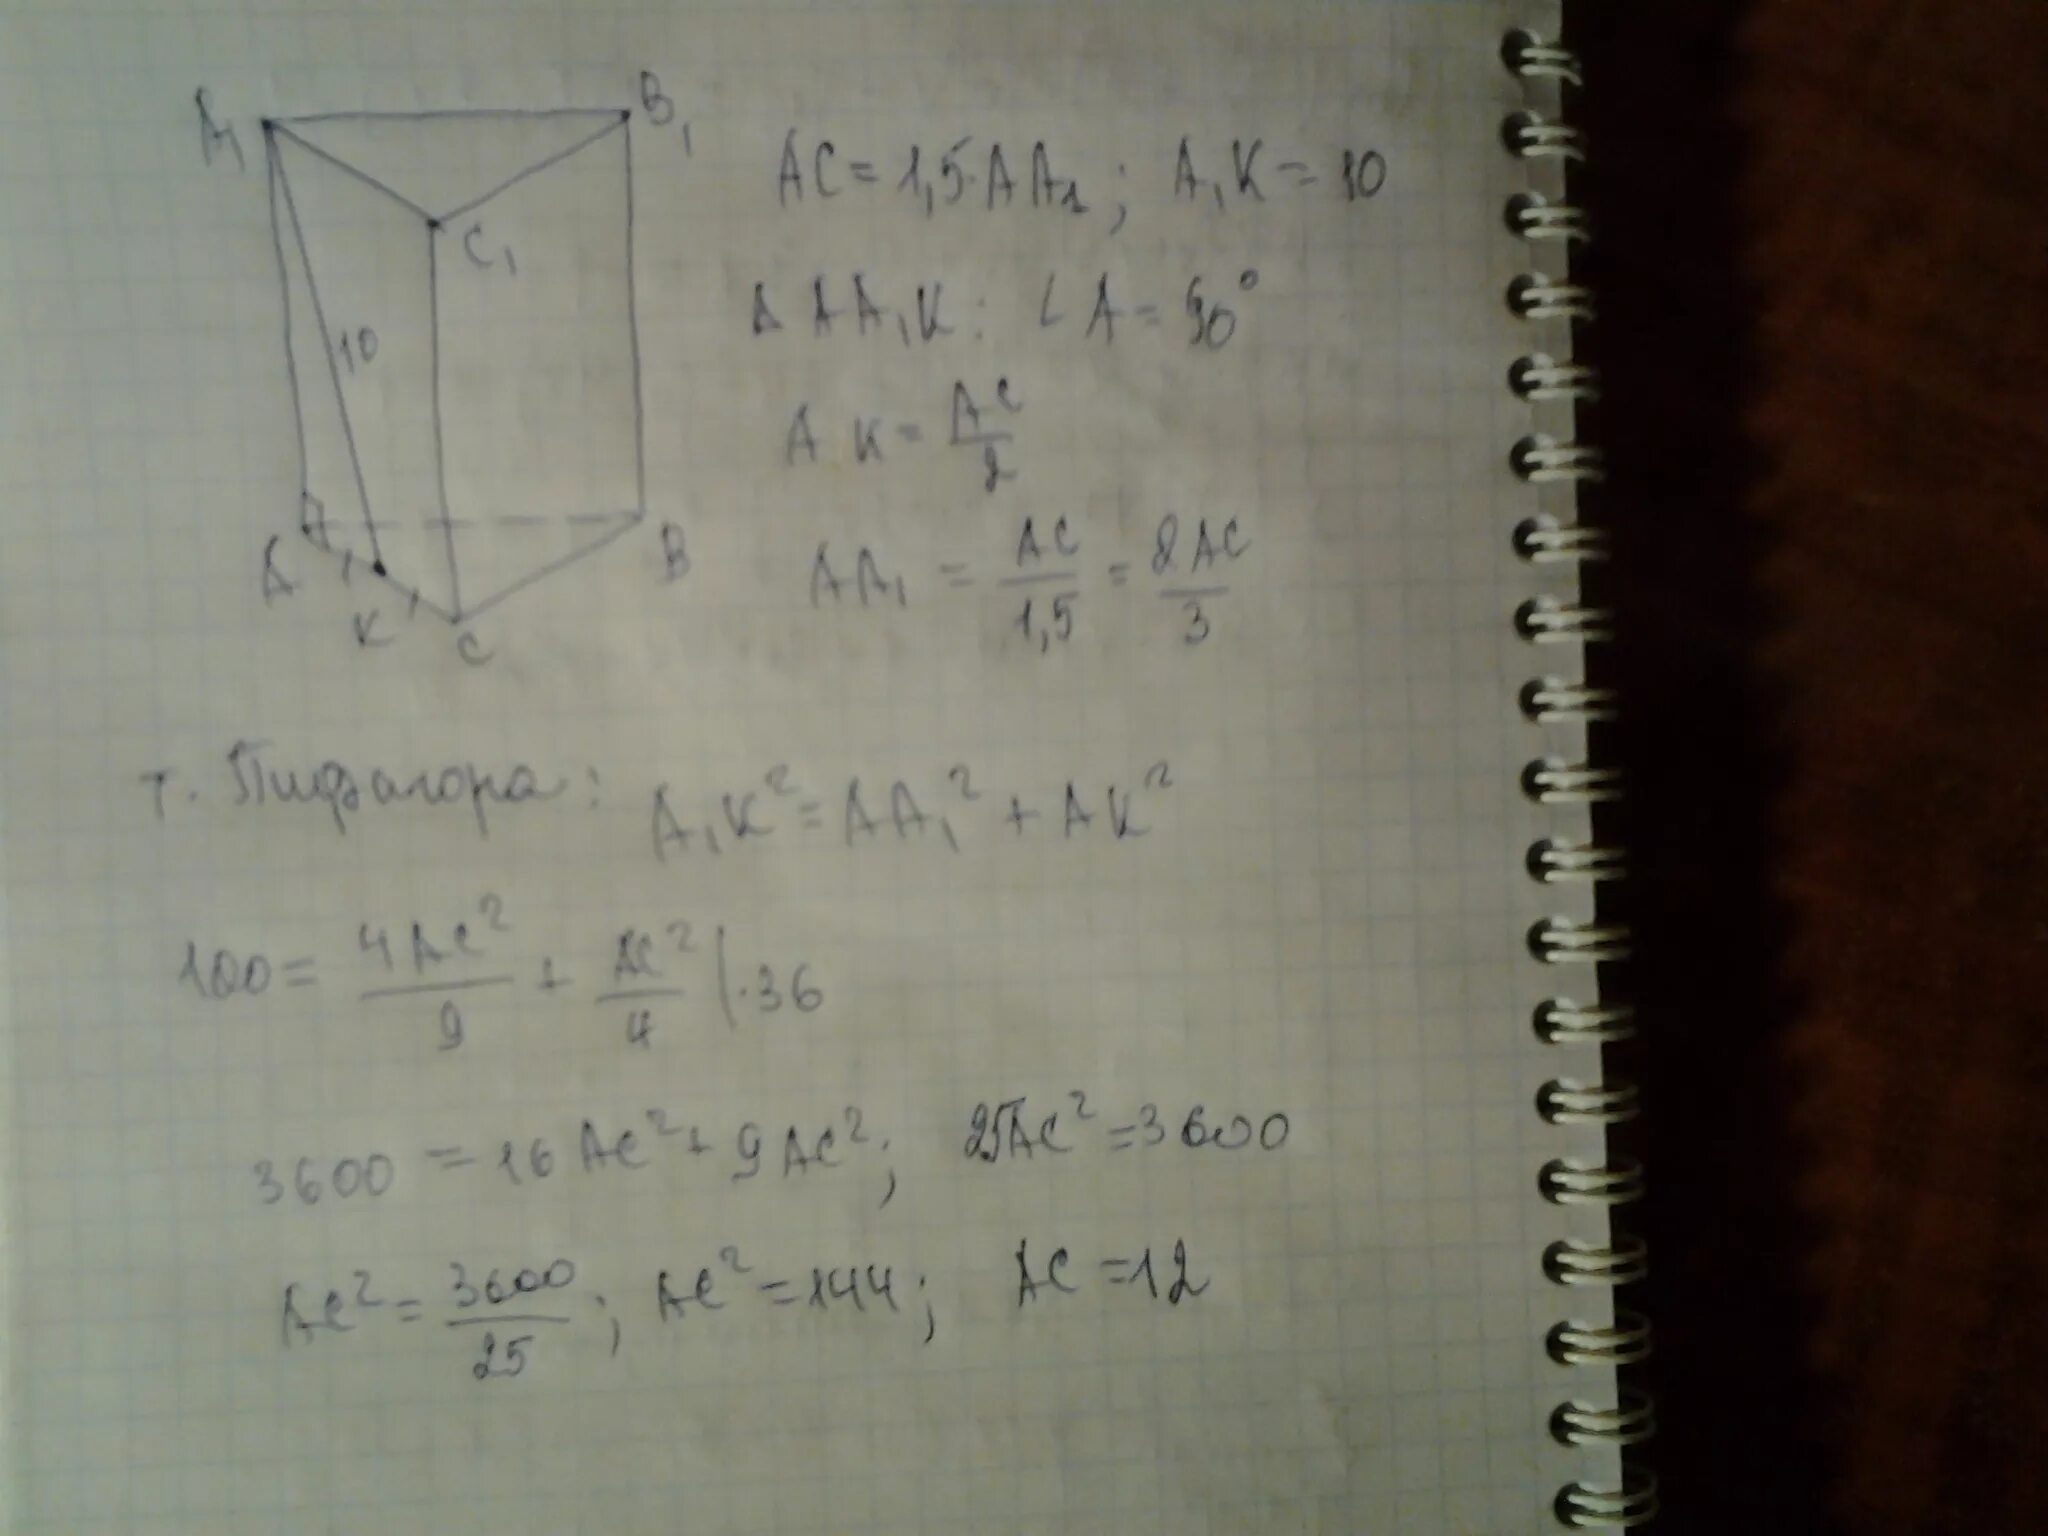 A₁
B₁
C₁
10
A
B
K
C
AC = 1,5·AA₁; A₁K = 10
Δ AA₁K: ∠A = 90°
AK = AC/2
AA₁ = AC/1,5 = 2AC/3
т. Пифагора: A₁K² = AA₁² + AK²
100 = 4AC²/9 + AC²/4 |·36
3600 = 16AC² + 9AC²; 25AC² = 3600
AC² = 3600/25; AC² = 144; AC = 12